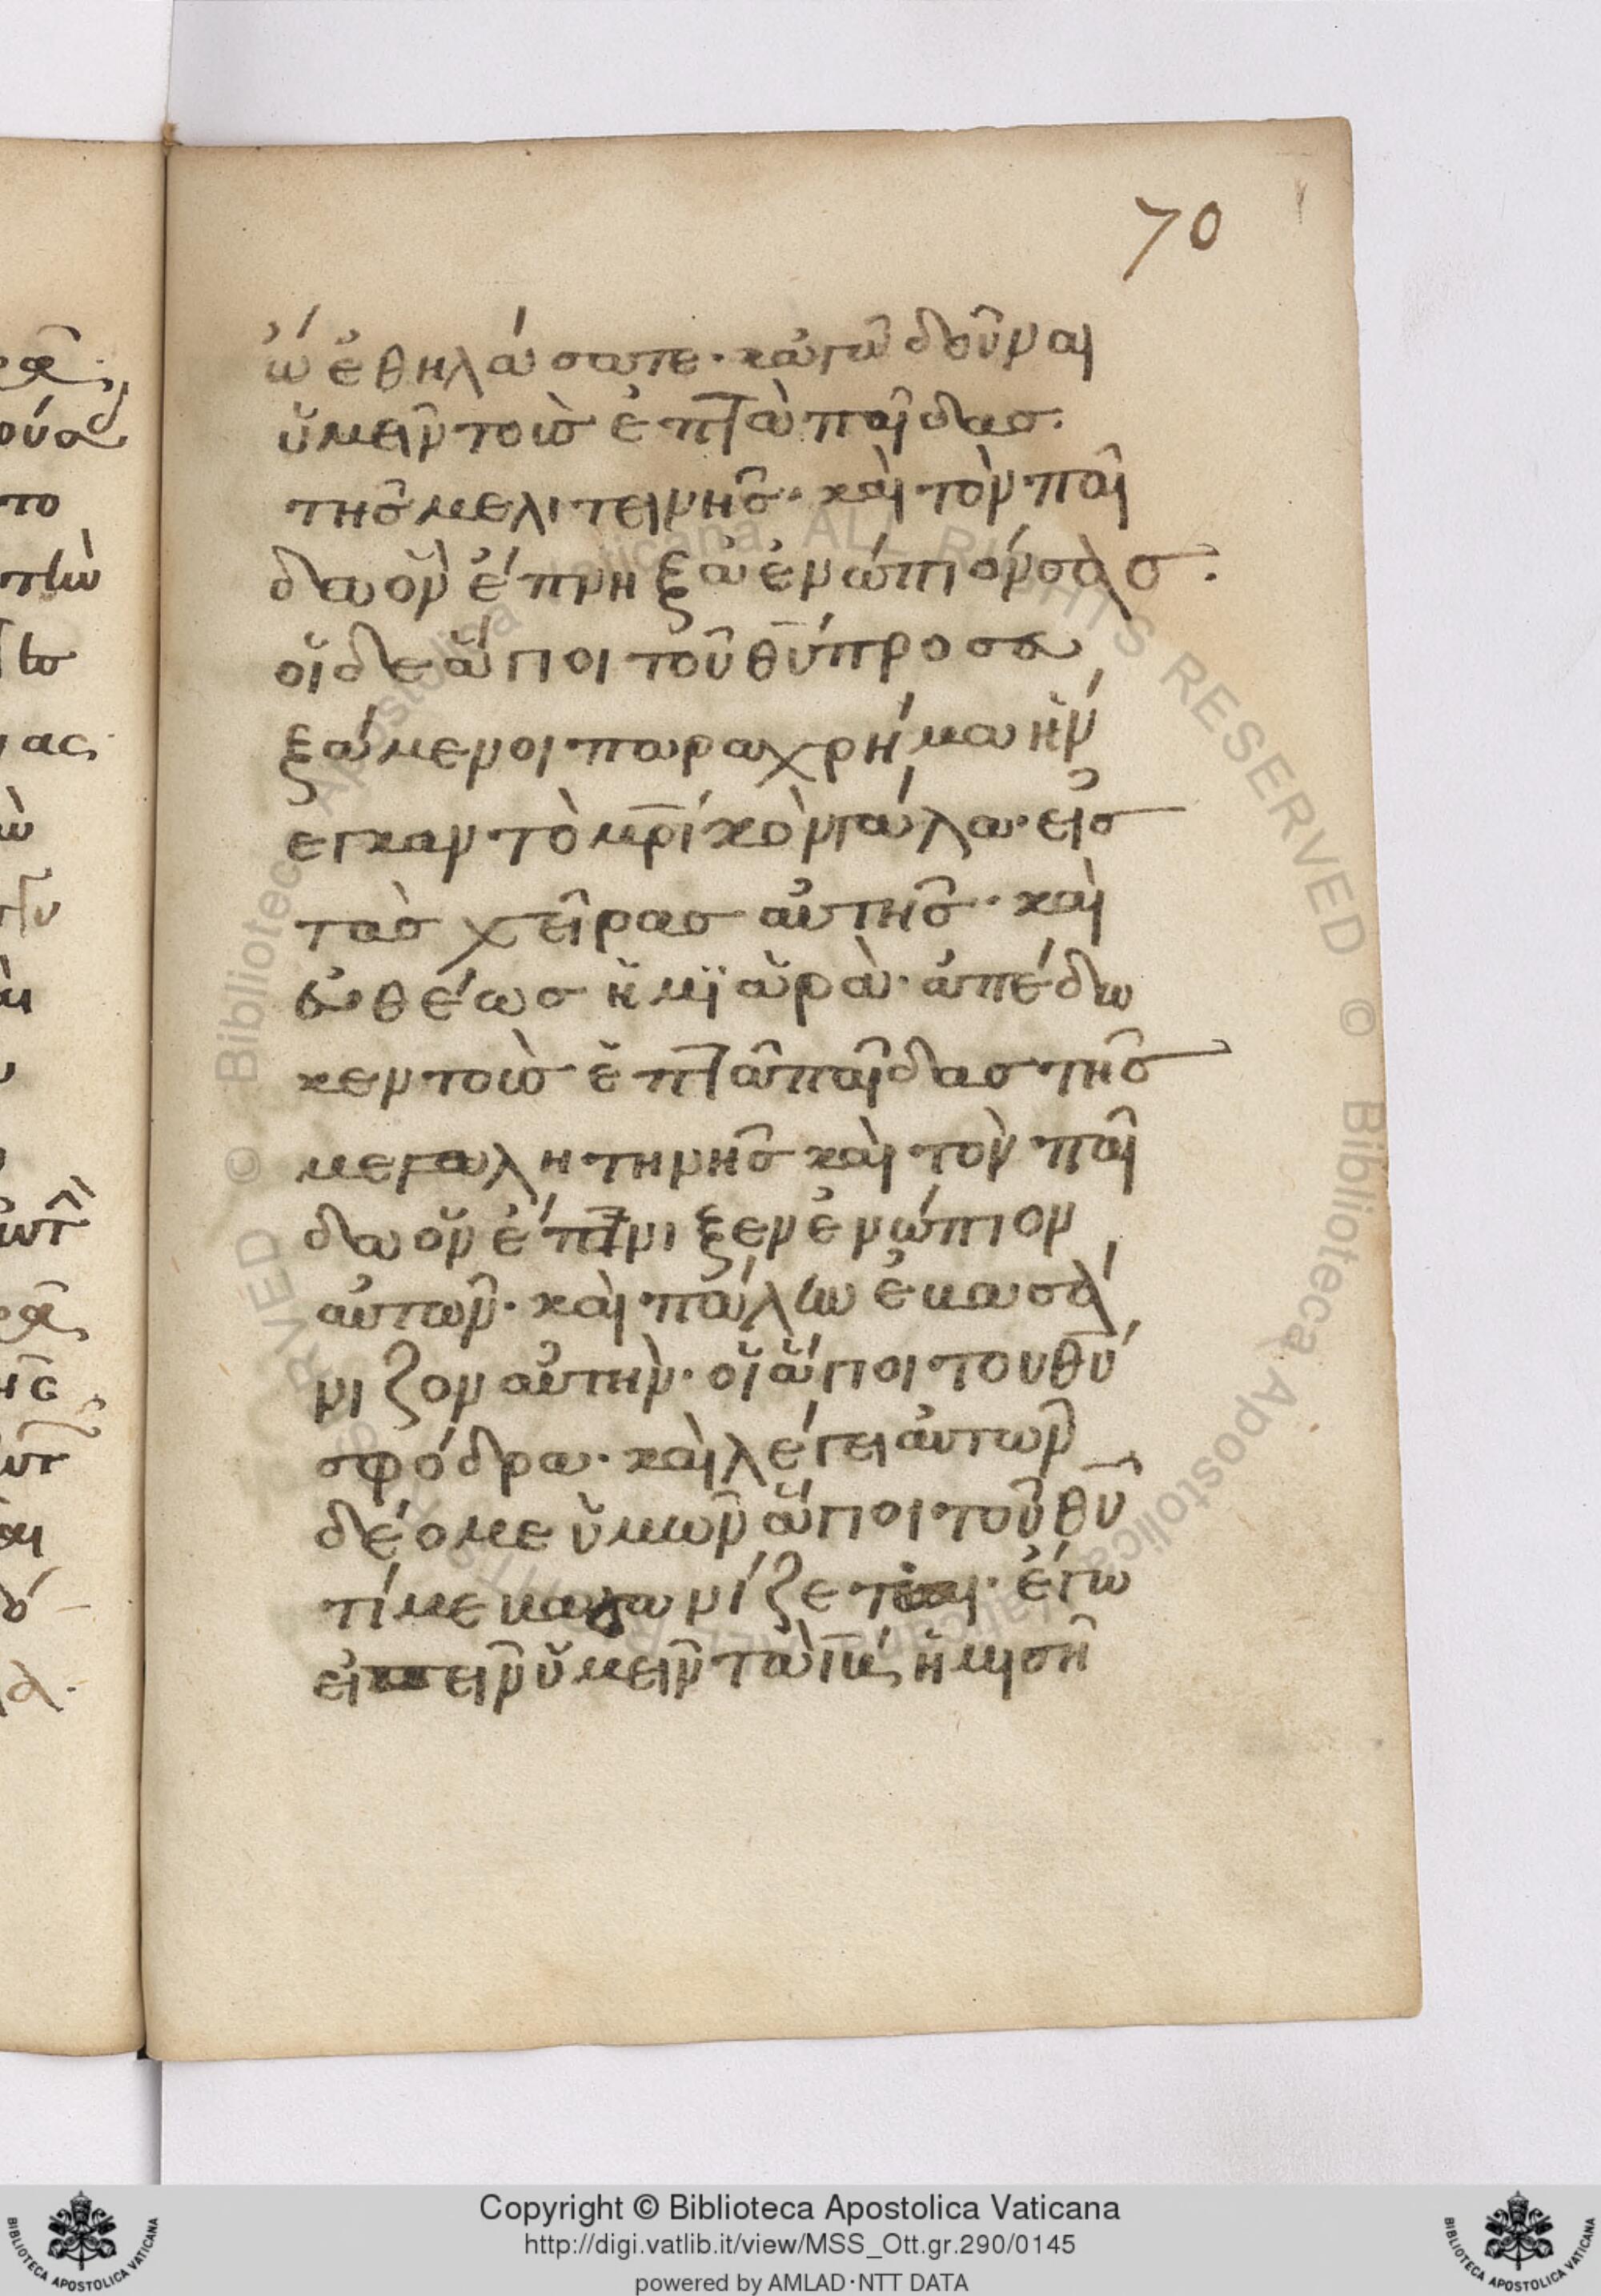 70
ὠ ἐθηλάσατε· κἀγὼ δοῦναι
ὑμεῖν τοὺσ ἑπτὰ παῖδασ·
τῆσ μελιτεινῆσ· καὶ τὸν παῖ
δα ὃν ἔπνηξα ἐνώπιόν σασ·
οἱ δὲ ἅγιοι τοῦ θῦ προσα
ξάμενοι παραχρήμα ἤν
εγκαν τὸ μρικὸν γάλα· εἰσ
τὰσ χεῖρασ αὐτῆσ· καὶ
εὐθέωσ ἡ μϊαρὰ· ἀπέδω
κεν τοὺσ ἑπτὰ παῖδασ τῆσ
μεγαλητηνῆσ καὶ τὸν παῖ
δα ὃν ἔπνιξεν ἐνώπιον
αὐτῶν· καὶ πάλιν ἐβασα
νιζον αὐτὴν· οἱ ἅγιοι του θῦ
σφόδρα· καὶ λέγει αὐτῶν
δέομε ὑμῶν ἅγιοι τοῦ θῦ
τί με βασανίζεται· ἐγω
εἰπεῖν ὑμεῖν τὰ ιβ ἥμιση
Copyright © Biblioteca Apostolica Vaticana
http://digi.vatlib.it/view/MSS_Ott.gr.290/0145
powered by AMLAD·NTT DATA